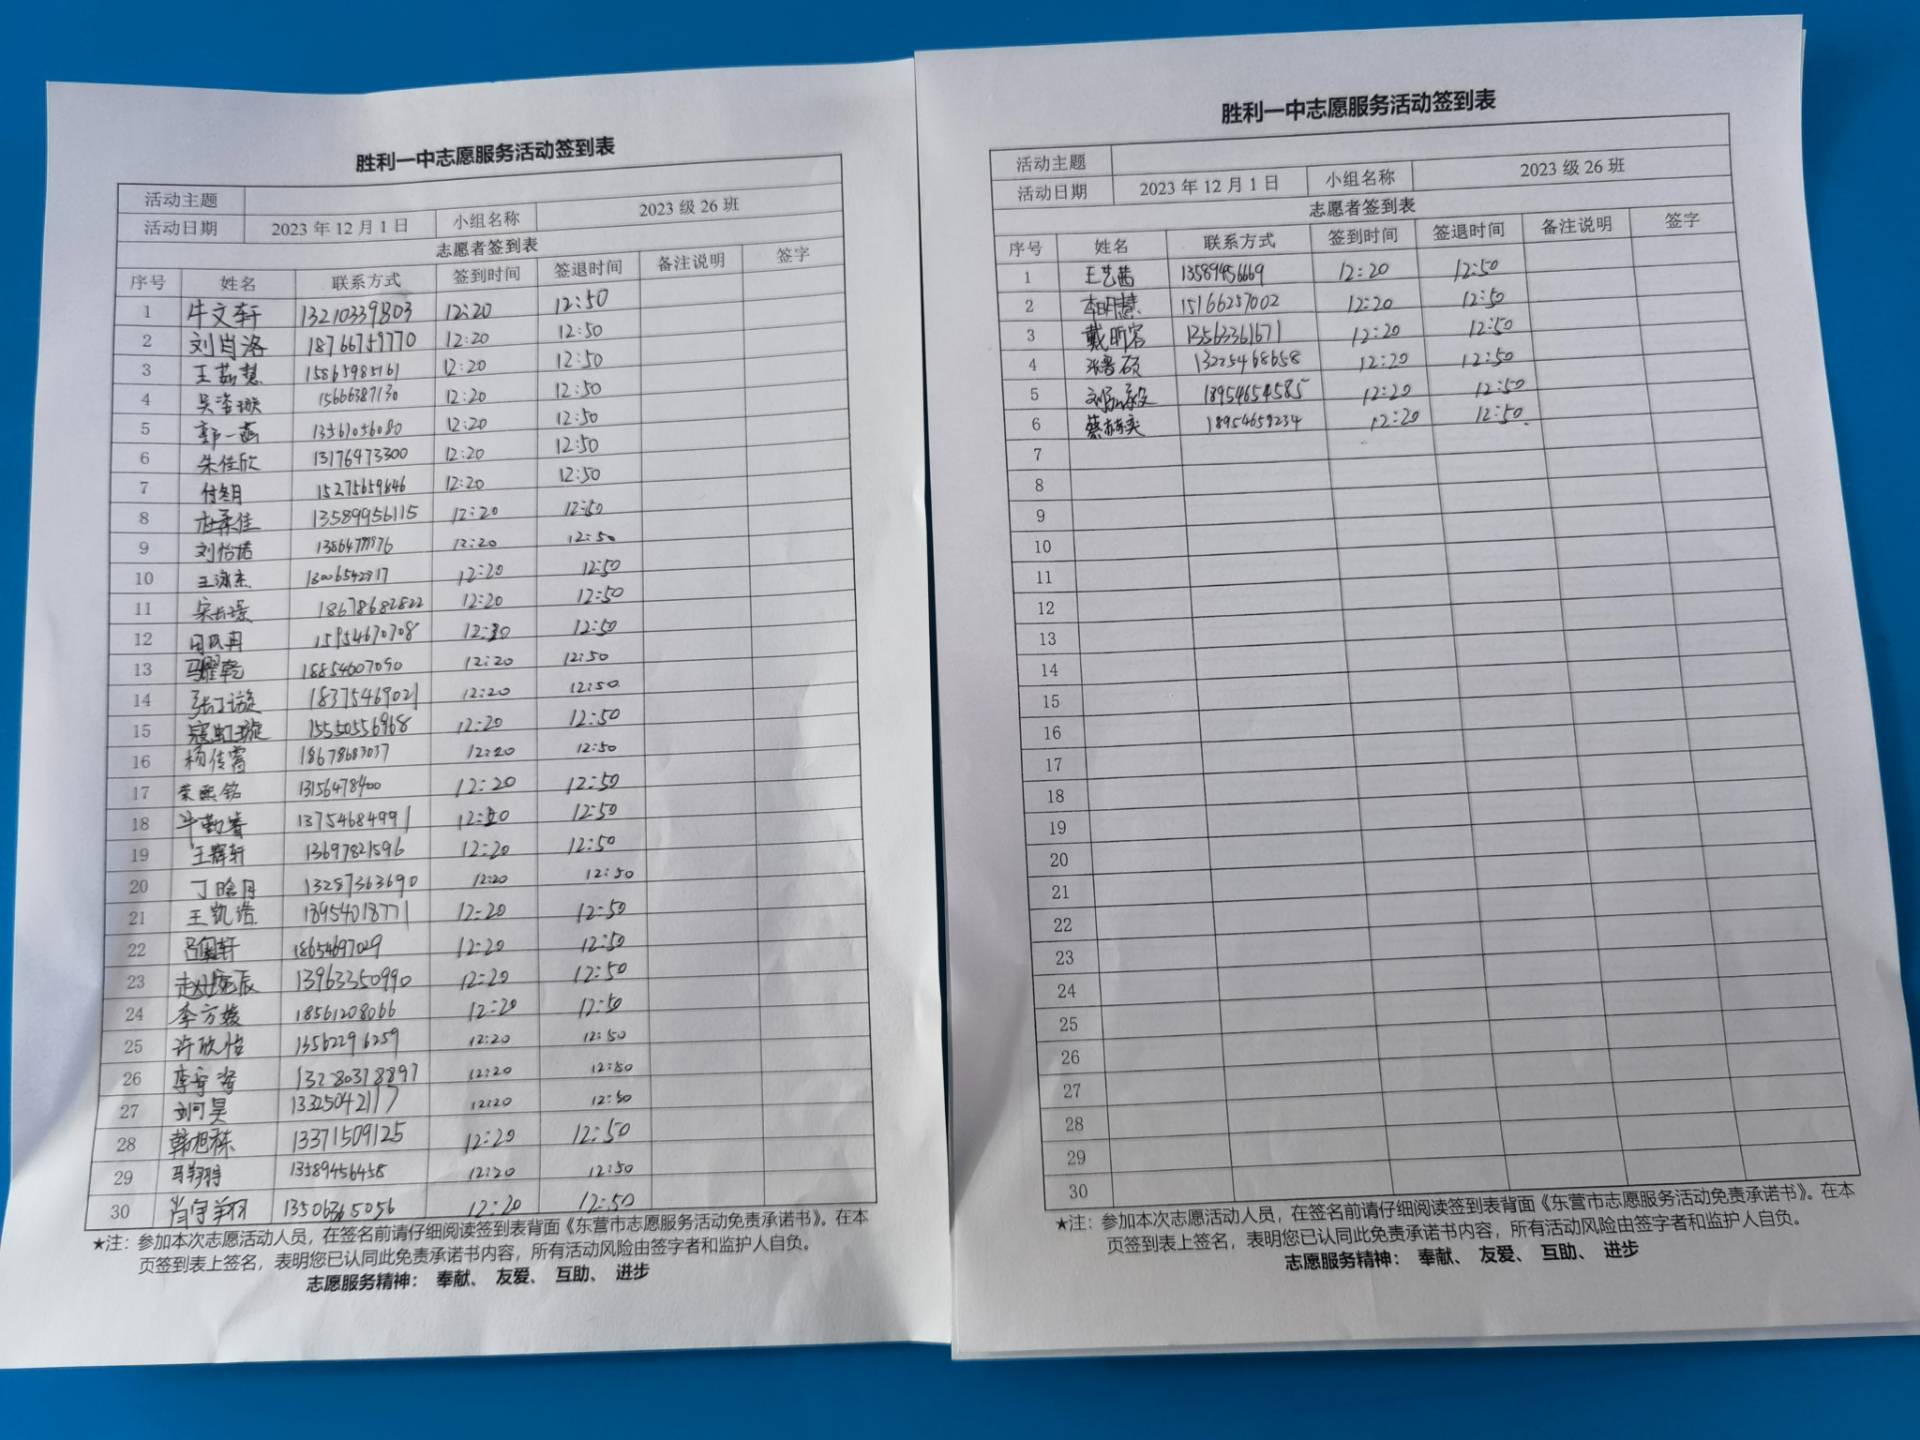 胜利一中志愿服务活动签到表
活动主题
活动日期 2023 年 12 月 1 日 小组名称 2023 级 26 班
志愿者签到表
序号 姓名 联系方式 签到时间 签退时间 备注说明 签字
1 牛文轩 13210339803 12:20 12:50
2 刘肖洛 18766759770 12:20 12:50
3 王荔慧 15865985161 12:20 12:50
4 15666387130 12:20 12:50
5 郭一菡 13561056080 12:20 12:50
6 朱佳欣 13176473300 12:20 12:50
7 15275659846 12:20 12:50
8 13589956115 12:20 12:50
9 刘怡诺 12:20 12:50
10 12:20 12:50
11 18678682822 12:20 12:50
12 15954670708 12:20 12:50
13 马耀乾 18854607090 12:20 12:50
14 18375469021 12:20 12:50
15 寇虹璇 15550556968 12:20 12:50
16 杨传霄 18678683037 12:20 12:50
17 荣熙铭 13156478400 12:20 12:50
18 13754684991 12:20 12:50
19 王辉轩 13697821596 12:20 12:50
20 丁晗月 13287363690 12:20 12:50
21 王凯浩 18954018771 12:20 12:50
22 18654697029 12:20 12:50
23 13963350990 12:20 12:50
24 李方媛 18561208066 12:20 12:50
25 许欣怡 13562296259 12:20 12:50
26 13280378897 12:20 12:50
27 刘可昊 13325042117 12:20 12:50
28 韩旭栋 13371509125 12:20 12:50
29 马翔翔 13589456458 12:20 12:50
30 肖宇翔 13506365056 12:20 12:50
★注：参加本次志愿活动人员，在签名前请仔细阅读签到表背面《东营市志愿服务活动免责承诺书》。在本
页签到表上签名，表明您已认同此免责承诺书内容，所有活动风险由签字者和监护人自负。
志愿服务精神： 奉献、 友爱、 互助、 进步
胜利一中志愿服务活动签到表
活动主题
活动日期 2023 年 12 月 1 日 小组名称 2023 级 26 班
志愿者签到表
序号 姓名 联系方式 签到时间 签退时间 备注说明 签字
1 王艺茜 13589456669 12:20 12:50
2 李明慧 15166257002 12:20 12:50
3 戴昕容 13563361671 12:20 12:50
4 13225468658 12:20 12:50
5 18954654585 12:20 12:50
6 18954659234 12:20 12:50
7
8
9
10
11
12
13
14
15
16
17
18
19
20
21
22
23
24
25
26
27
28
29
30
★注：参加本次志愿活动人员，在签名前请仔细阅读签到表背面《东营市志愿服务活动免责承诺书》。在本
页签到表上签名，表明您已认同此免责承诺书内容，所有活动风险由签字者和监护人自负。
志愿服务精神： 奉献、 友爱、 互助、 进步